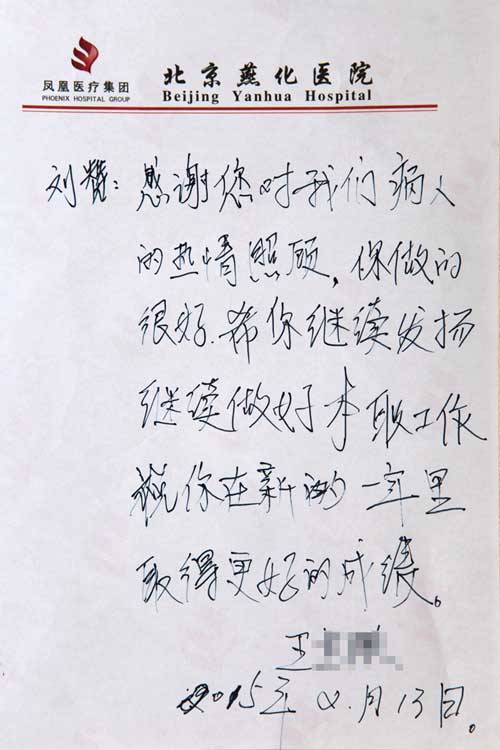 凤凰医疗集团
PHOENIX HOSPITAL GROUP
北京燕化医院
Beijing Yanhua Hospital
刘赞：感谢您对我们病人
的热情照顾，你做的
很好.希你继续发扬
继续做好本职工作
祝你在新的一年里
取得更好的成绩。
王
2015年2.月13日。